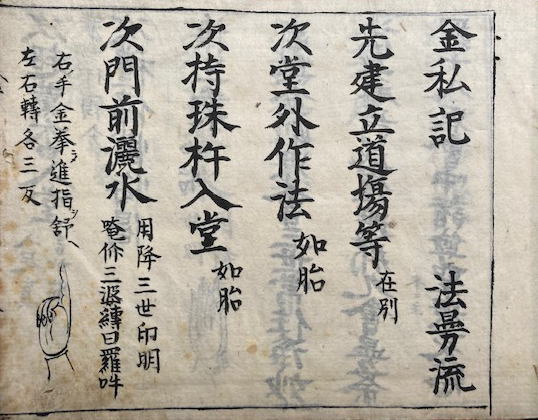 金私記 法曼流
先建立道場等 在別
次堂外作法 如胎
次持珠杵入堂 如胎
次門前灑水 用降三世印明
唵你三婆縛日羅吽
右手金拳進指舒ヘ
左右轉各三反